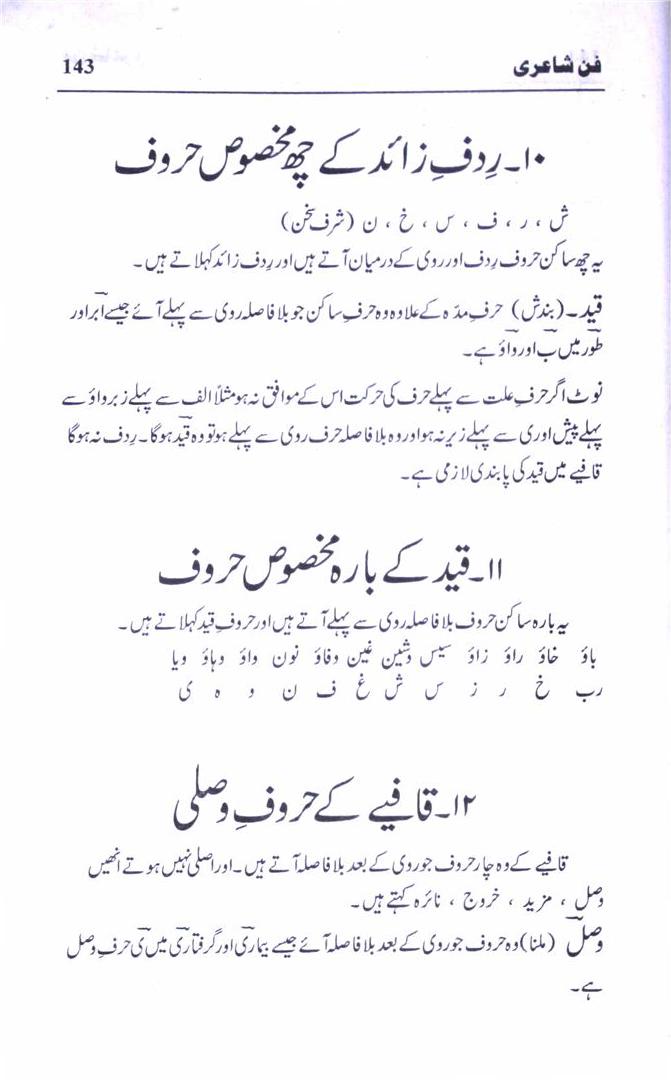 فن شاعری 143
۱۰۔ رِدفِ زائد کے چھ مخصوص حروف
ش ، ر ، ف ، س ، خ ، ن (شرف سخن)
یہ چھ ساکن حروف رِدف اور روی کے درمیان آتے ہیں اور رِدف زائد کہلاتے ہیں۔
قید۔ (بندش) حرفِ مدّہ کے علاوہ وہ حرفِ ساکن جو بلا فاصلہ روی سے پہلے آئے جیسے ابر اور
طَور میں ب اور واؤ ہے۔
نوٹ اگر حرفِ علت سے پہلے حرف کی حرکت اس کے موافق نہ ہو مثلاً الف سے پہلے زبر واؤ سے
پہلے پیش اور ی سے پہلے زیر نہ ہو اور وہ بلا فاصلہ حرف روی سے پہلے ہو تو وہ قید ہوگا۔ رِدف نہ ہوگا
قافیے میں قید کی پابندی لازمی ہے۔
۱۱۔ قید کے بارہ مخصوص حروف
یہ بارہ ساکن حروف بلا فاصلہ روی سے پہلے آتے ہیں اور حروفِ قید کہلاتے ہیں۔
باؤ خاؤ راؤ زاؤ سیس وشین غین وفاؤ نون واؤ وہاؤ ویا
رب خ ر ز س ش غ ف ن و ہ ی
۱۲۔ قافیے کے حروفِ وصلی
قافیے کے وہ چار حروف جو روی کے بعد بلا فاصلہ آتے ہیں۔ اور اصلی نہیں ہوتے انھیں
وصل ، مزید ، خروج ، نائرہ کہتے ہیں۔
وصل (ملنا) وہ حروف جو روی کے بعد بلا فاصلہ آئے جیسے بیماری اور گرفتاری میں ی حرفِ وصل
ہے۔